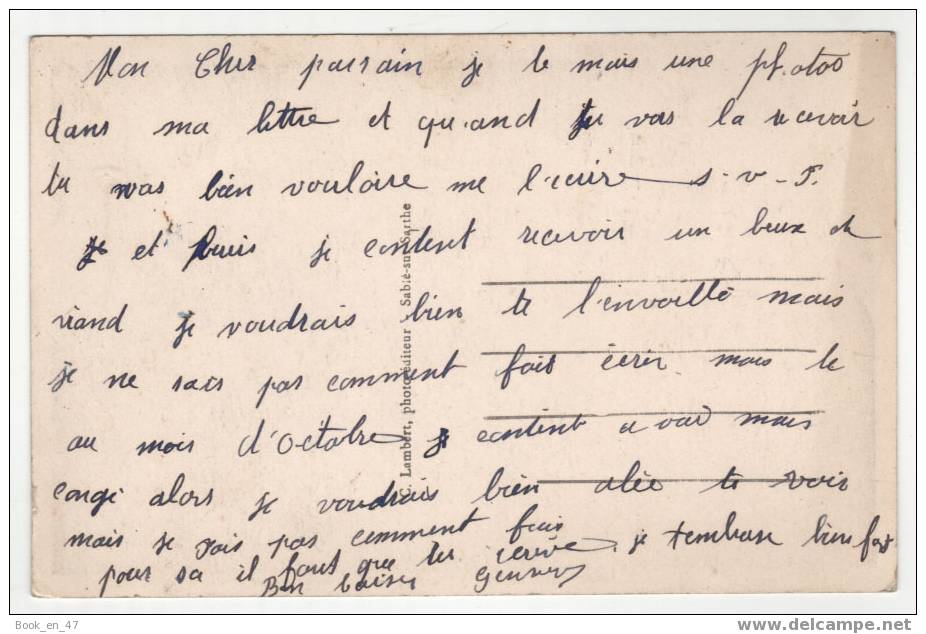 Mon Cher parrain je te mais une photoo
dans ma lettre et quand tu vas la recevoir
tu vas bien vouloire me l'icuire s-v-P.
et puis je content recevoir un beux
viand je voudrais bien te l'envoillé mais
je ne sais pas comment fait écrir mais le
au mois d'Octobre je contint avoir mais
congé alors je voudrais bien alée te voir
mais je sais pas comment fair je tembase bien fort
pour sa il faut que tu
Bon baiser
C. Lambert, photo-éditeur - Sablé-sur-Sarthe
Book_en_47
www.delcampe.net